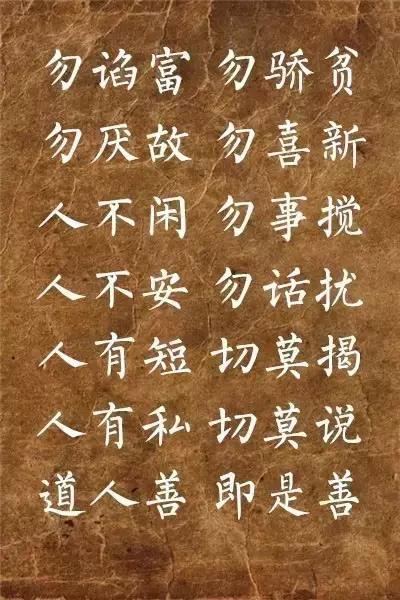 勿谄富 勿骄贫
勿厌故 勿喜新
人不闲 勿事搅
人不安 勿话扰
人有短 切莫揭
人有私 切莫说
道人善 即是善